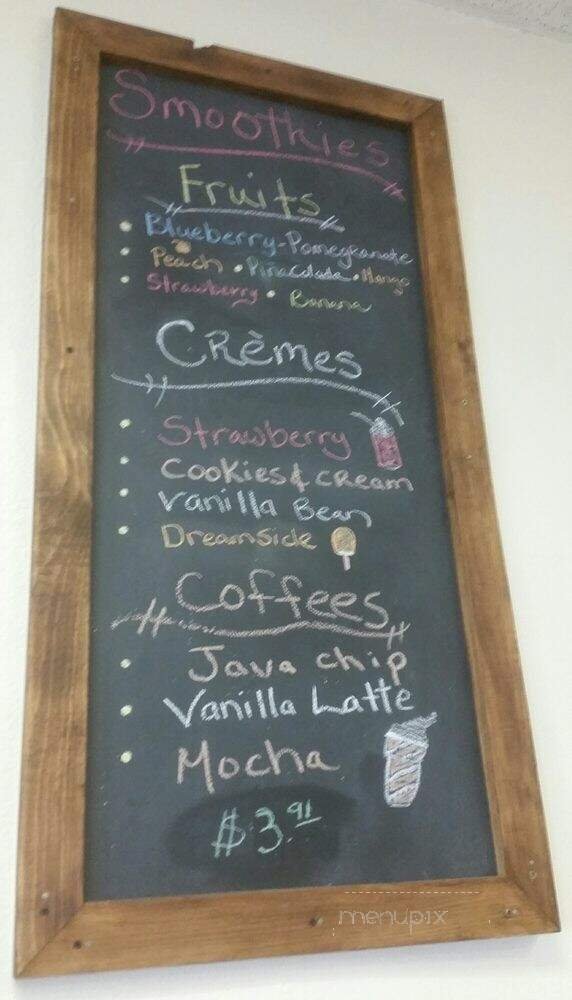 Smoothies
Fruits
• Blueberry-Pomegranate
• Peach • Pinacolada • Mango
• Strawberry • Banana
Crèmes
• Strawberry
• Cookies & Cream
• Vanilla Bean
• Dreamsicle
Coffees
• Java chip
• Vanilla Latte
• Mocha
$3.91
menupix